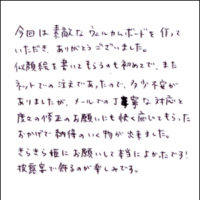 今回は素敵なウェルカムボードを作って
いただき、ありがとうございました。
似顔絵を書いてもらうのも初めてで、また
ネットでの注文であったので、多少不安が
ありましたが、メールでの丁寧な対応と
度々の修正のお願いにも快く応じてもらった
おかげで納得のいく物が出来ました。
きらきら姫にお願いして本当によかったです!
披露宴で飾るのが楽しみです。